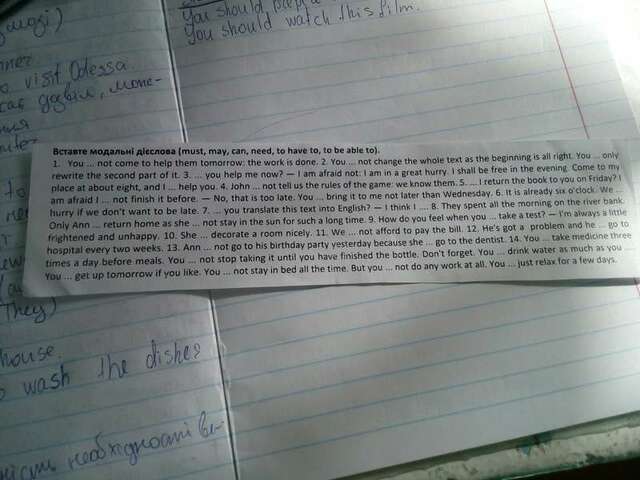 You should
You should watch this film.
visit Odessa.
Вставте модальні дієслова (must, may, can, need, to have to, to be able to).
1. You ... not come to help them tomorrow: the work is done. 2. You ... not change the whole text as the beginning is all right. You ... only
rewrite the second part of it. 3. ... you help me now? — I am afraid not: I am in a great hurry. I shall be free in the evening. Come to my
place at about eight, and I ... help you. 4. John ... not tell us the rules of the game: we know them. 5. ... I return the book to you on Friday? I
am afraid I ... not finish it before. — No, that is too late. You ... bring it to me not later than Wednesday. 6. It is already six o'clock. We ...
hurry if we don't want to be late. 7. ... you translate this text into English? — I think I ... 8. They spent all the morning on the river bank.
Only Ann ... return home as she ... not stay in the sun for such a long time. 9. How do you feel when you ... take a test? — I'm always a little
frightened and unhappy. 10. She ... decorate a room nicely. 11. We ... not afford to pay the bill. 12. He's got a problem and he ... go to
hospital every two weeks. 13. Ann ... not go to his birthday party yesterday because she ... go to the dentist. 14. You ... take medicine three
times a day before meals. You ... not stop taking it until you have finished the bottle. Don't forget. You ... drink water as much as you ...
You ... get up tomorrow if you like. You ... not stay in bed all the time. But you ... not do any work at all. You ... just relax for a few days.
They)
house.
wash the dishes
необхідності